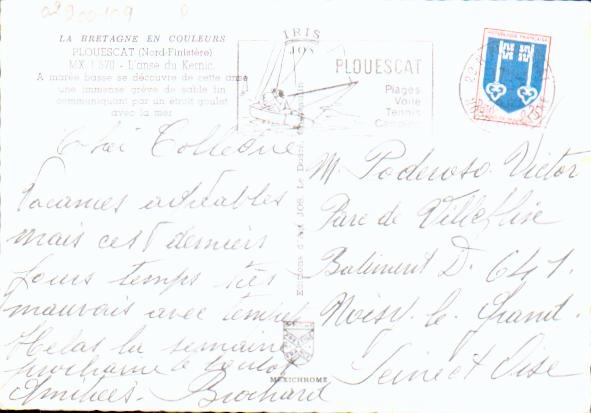 LA BRETAGNE EN COULEURS
PLOUESCAT (Nord-Finistère)
MX 1.570 - L'anse du Kernic.
A marée basse se découvre de cette anse
une immense grève de sable fin
communiquant par un étroit goulet
avec la mer
IRIS
JOS
PLOUESCAT
Plages
Voile
Tennis
REPUBLIQUE FRANÇAISE
Cher Collègue
Vacances agréables
mais ces derniers
jours temps très
mauvais avec
Helas la semaine
prochaine
Amitiées. Brochard
Editions d'art JOS
M. Poderoso Victor
Parc de Villeflix
Batiment D. 641.
Noisy le Grand.
Seine et Oise
MEXICHROME